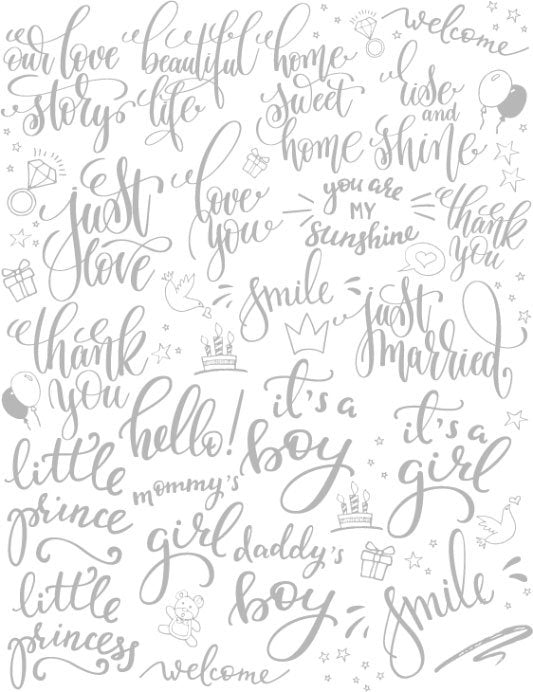 our love
story
beautiful
life
home
sweet
home
welcome
rise
and
shine
just
love
love
you
you are
MY
sunshine
thank
you
smile
just
married
thank
you
hello!
it's a
boy
it's a
girl
little
prince
mommy's
girl
daddy's
boy
smile
little
princess
welcome